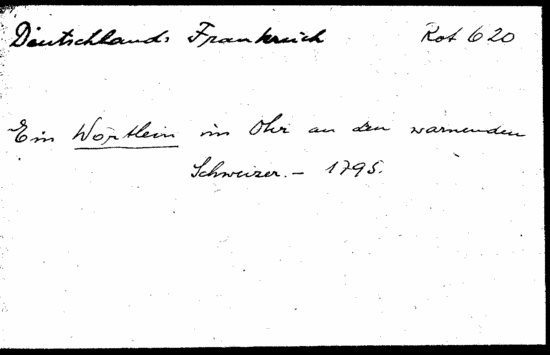 Deutschland: Frankreich Rot 620
Ein Wörtlein im Ohr an den warnenden
Schweizer. – 1795.